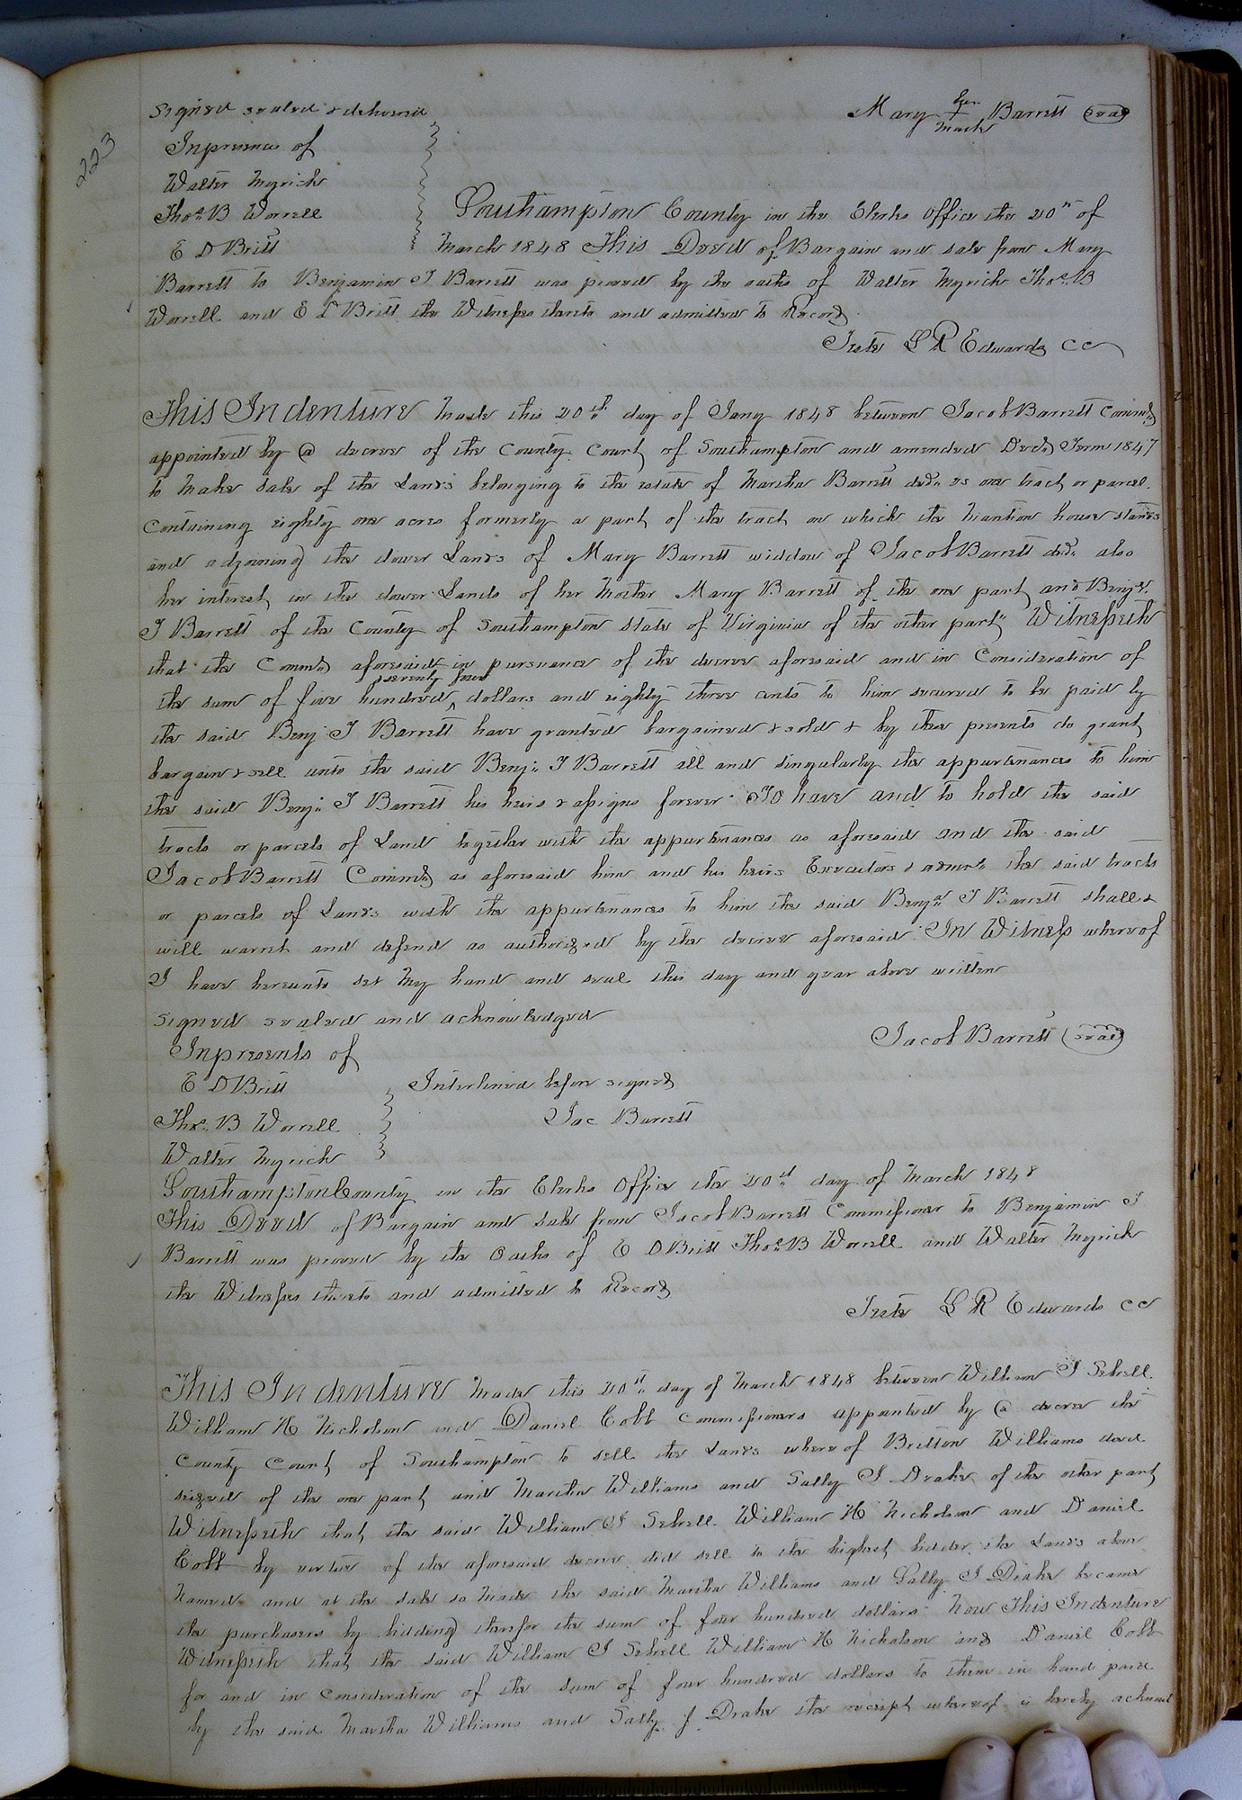 223
Signed sealed & delivered
Mary her + mark Barrett (seal)
Inpresence of
Walter Myrick
Thos. B Worrell
E D Britt
Southampton County in the Clerks Office the 20th of
March 1848 This Deed of Bargain and sale from Mary
Barrett to Benjamin J Barrett was proved by the oaths of Walter Myrick Thos. B
Worrell and E D Britt the Witnesses thereto and admitted to Record
Teste L R Edwards CC
This Indenture Made this 20th day of Jany 1848 between Jacob Barrett Commr
appointed by @ decree of the County Court of Southampton and amended Decr Term 1847
to Make Sale of the Lands belonging to the estate of Martha Barrett decd. as one tract or parcel
Containing eighty one acres formerly a part of the tract on which the Mantion house stands
and adjoining the dower Lands of Mary Barrett widdow of Jacob Barrett decd. also
her interest in the dower Lands of her Mother Mary Barrett of the one part and Benjn.
J Barrett of the County of Southampton State of Virginia of the other part Witnesseth
that the Commr aforesaid in pursuance of the decree aforesaid and in Consideration of
the sum of five hundred seventy four dollars and eighty three cents to him secured to be paid by
the said Benj J Barrett have granted bargained & sold & by these presents do grant
bargain & sell unto the said Benjn J Barrett all and singularly the appurtenances to him
the said Benjn J Barrett his heirs & assigns forever To have and to hold the said
tracts or parcels of Land together with the appurtenances as aforesaid and the said
Jacob Barrett Commr as aforesaid him and his heirs Executors & admrs the said tracts
or parcels of Lands with the appurtenances to him the said Benjn J Barrett shall &
will warrnt and defend as authorized by the decree aforesaid In Witness whereof
I have hereunto set My hand and seal this day and year above written
Signed sealed and acknowledged
Jacob Barrett (seal)
Inpresents of
E D Britt
Interlined before signed
Thos. B Worrell
Jac Barrett
Walter Myrick
Southampton County in the Clerks Office the 20th day of March 1848
This Deed of Bargain and Sale from Jacob Barrett Commissioner to Benjamin J
Barrett was proved by the Oaths of E D Britt Thos. B Worrell and Walter Myrick
the Witnesses thereto and admitted to Record
Teste L R Edwards CC
This Indenture Made this 20th day of March 1848 between William J Sebrell
William H Nicholson and Daniel Cobb Commissioners appointed by @ decree the
County Court of Southampton to sell the Lands whereof Britton Williams decd
seized of the one part and Martha Williams and Sally J Drake of the other part
Witnesseth that the said William J Sebrell William H Nicholson and Daniel
Cobb by virtue of the aforesaid decree did sell to the highest bidder the Lands above
Named and at the sale so Made the said Martha Williams and Sally J Drake became
the purchasers by bidding therefor the sum of four hundred dollars Now This Indenture
Witnesseth that the said William J Sebrell William H Nicholson and Daniel Cobb
for and in Consideration of the sum of four hundred dollars to them in hand paid
by the said Martha Williams and Sally J Drake the receipt whereof is hereby acknowl